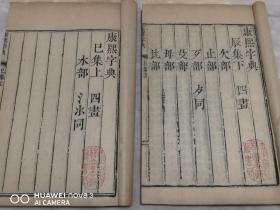 康熙字典
辰集下 四畫
欠部
止部
歹部 歺同
殳部
毋部
比部
康熙字典
巳集上 四畫
水部 氵氺同
HUAWEI nova 3
AI CAMERA